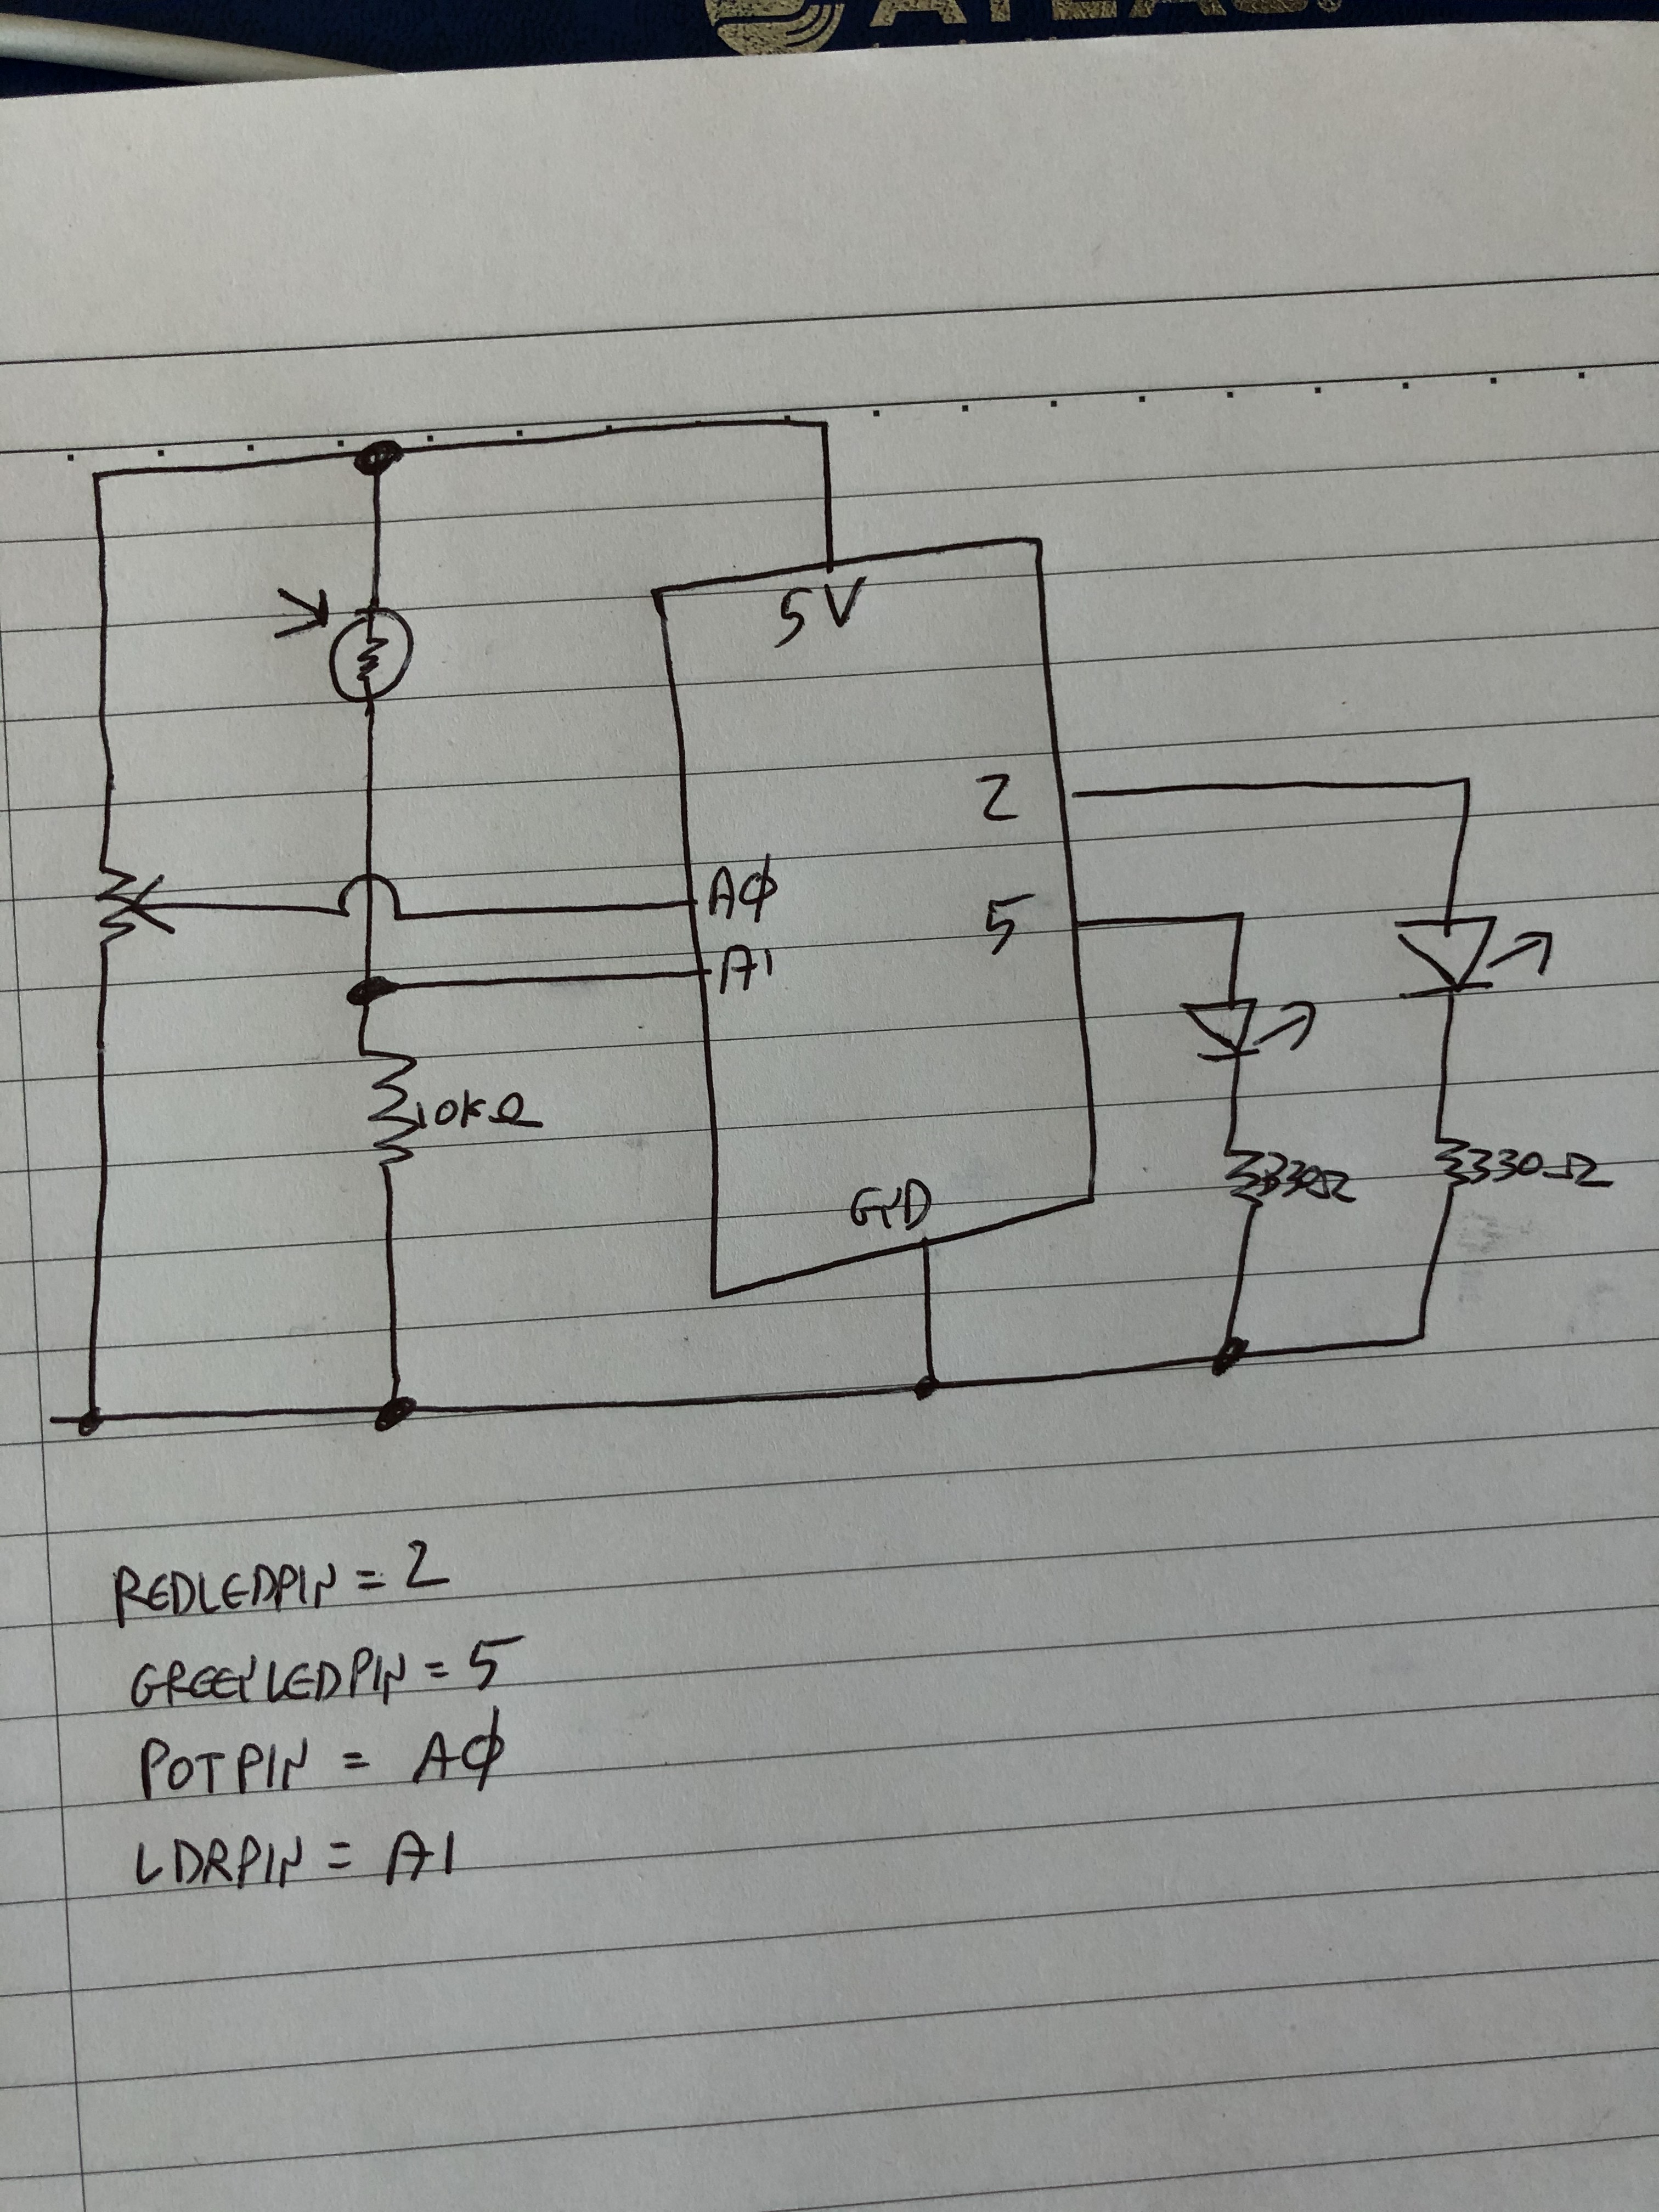 ATLAS
5V
2
AØ
5
A1
10kΩ
GND
330Ω
330Ω
REDLEDPIN = 2
GREENLEDPIN = 5
POTPIN = AØ
LDRPIN = A1